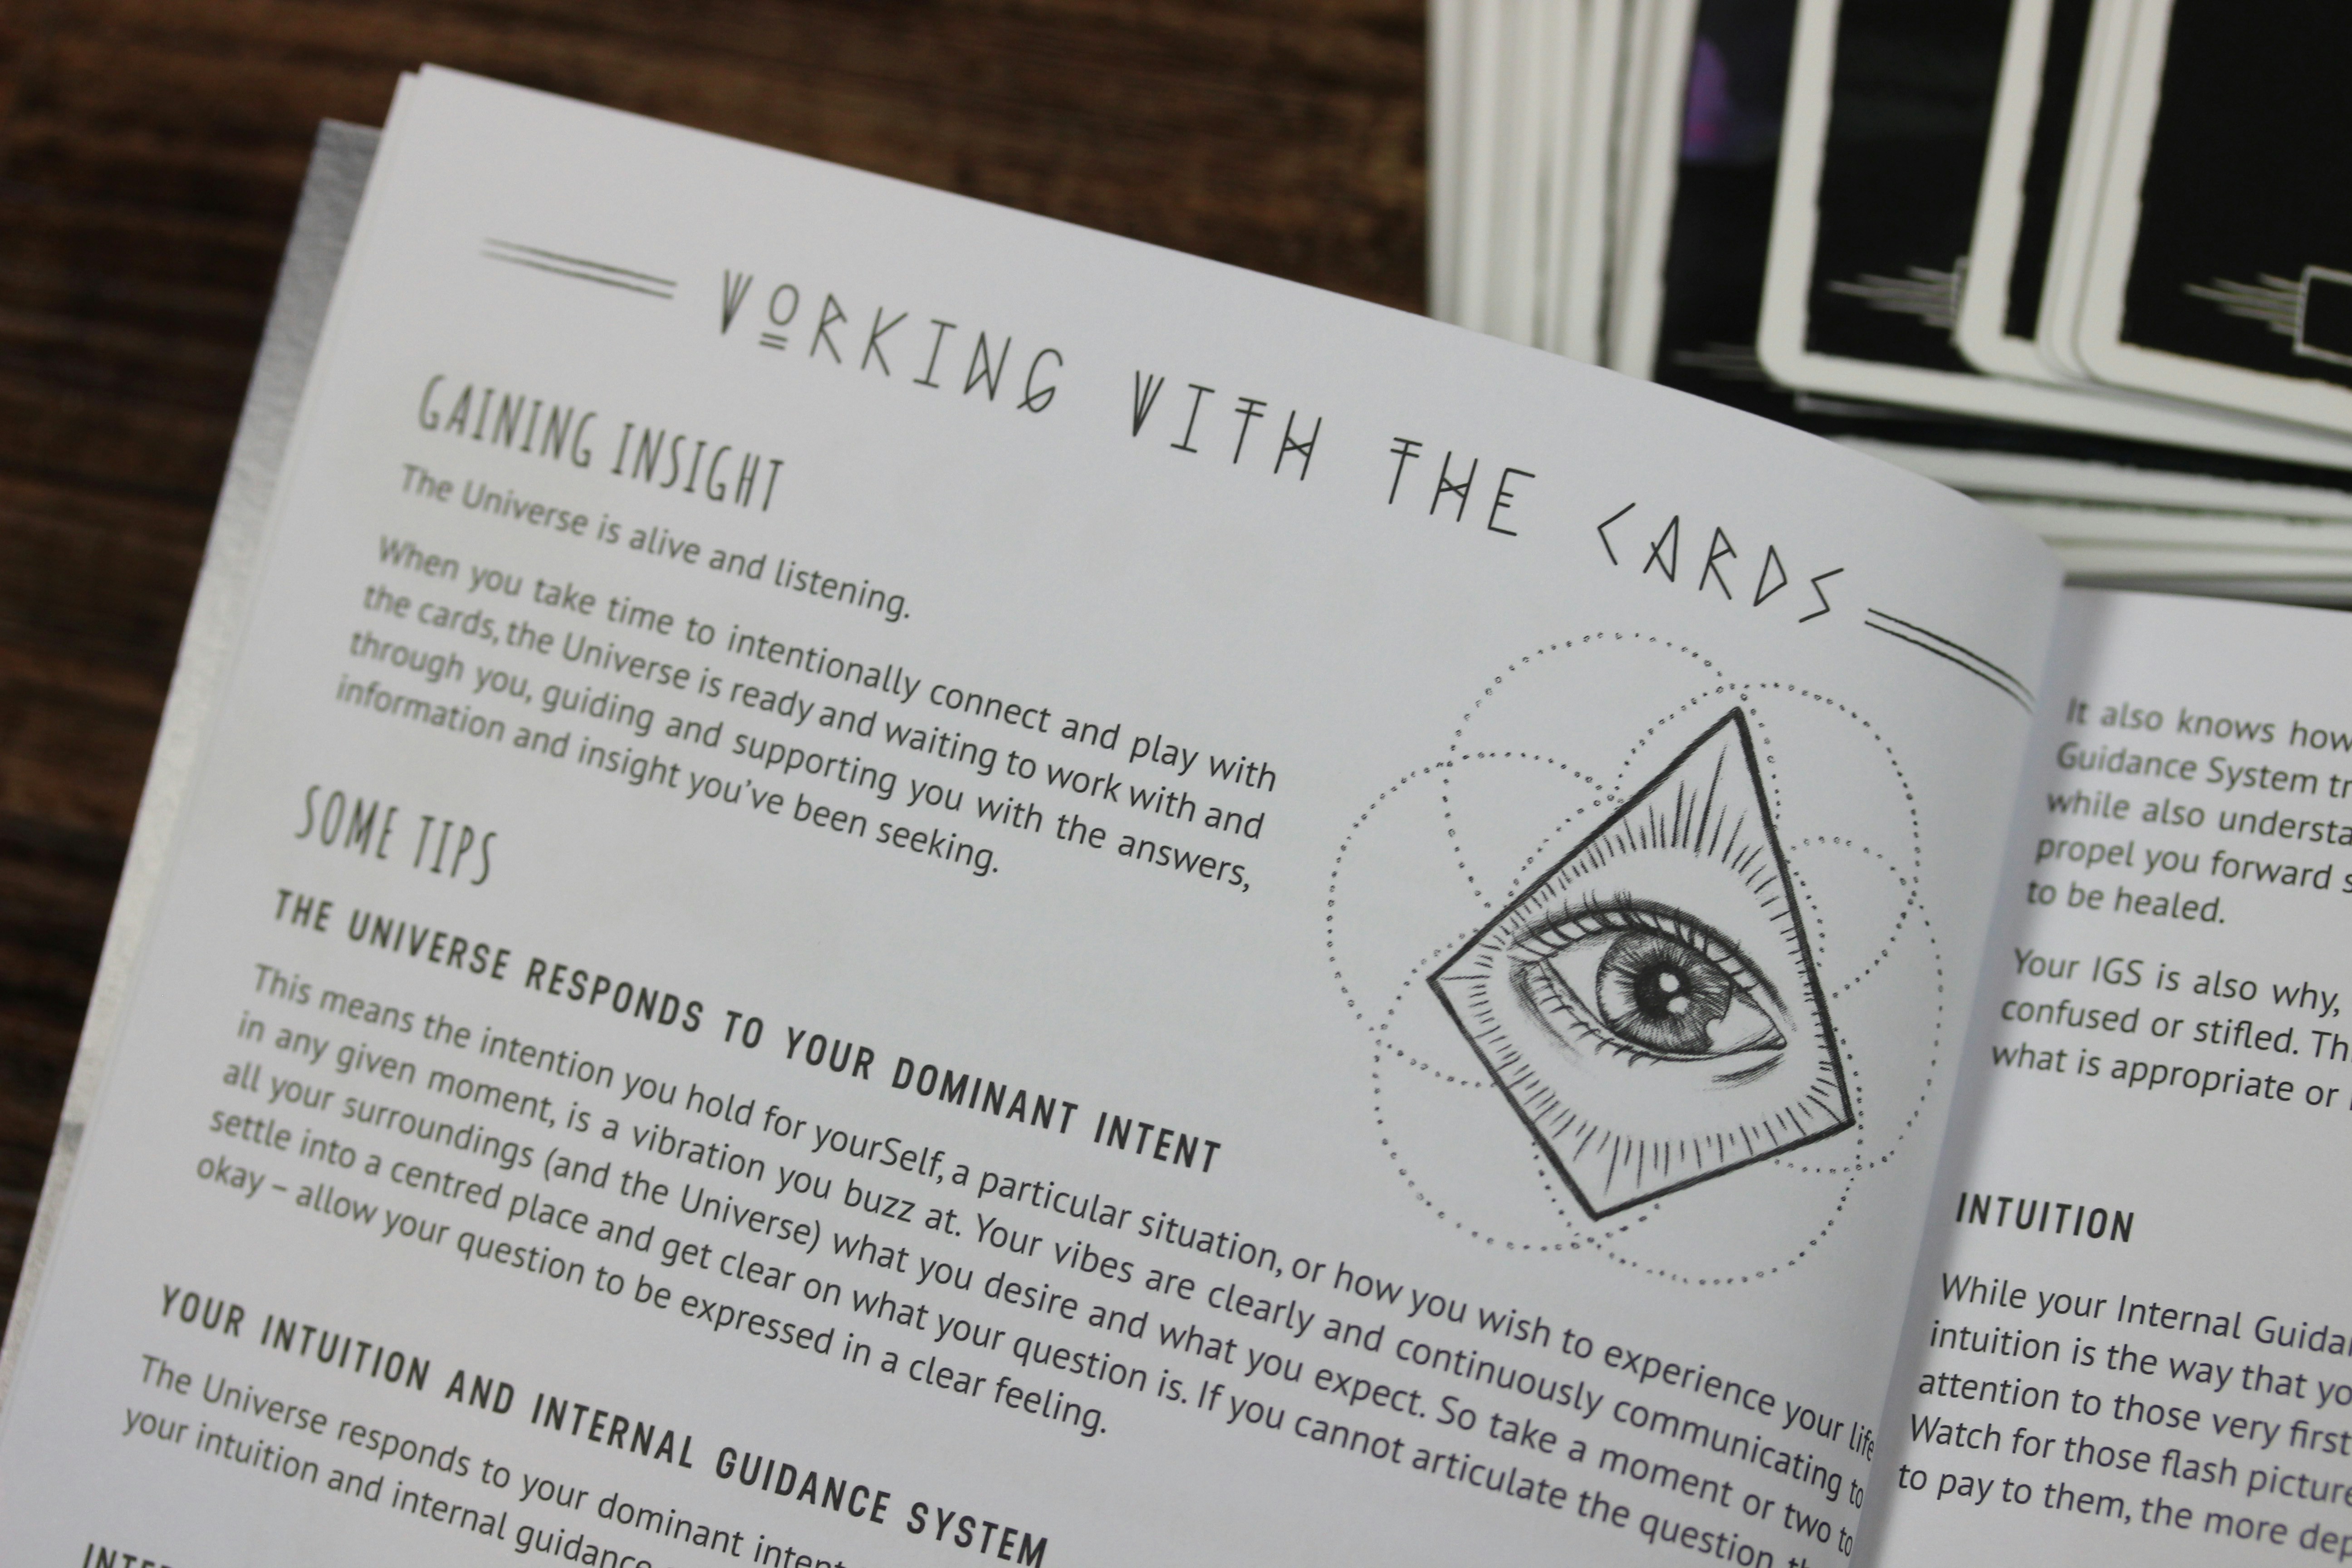 WORKING WITH THE CARDS
GAINING INSIGHT
The Universe is alive and listening.
When you take time to intentionally connect and play with
the cards, the Universe is ready and waiting to work with and
through you, guiding and supporting you with the answers,
information and insight you've been seeking.
SOME TIPS
THE UNIVERSE RESPONDS TO YOUR DOMINANT INTENT
This means the intention you hold for yourSelf, a particular situation, or how you wish to experience your life
in any given moment, is a vibration you buzz at. Your vibes are clearly and continuously communicating to
all your surroundings (and the Universe) what you desire and what you expect. So take a moment or two to
settle into a centred place and get clear on what your question is. If you cannot articulate the question,
okay – allow your question to be expressed in a clear feeling.
YOUR INTUITION AND INTERNAL GUIDANCE SYSTEM
The Universe responds to your dominant intent
your intuition and internal guidance
It also knows how
Guidance System
while also
propel you forward
to be healed.
Your IGS is also why,
confused or stifled.
what is appropriate or
INTUITION
While your Internal
intuition is the way that
attention to those very first
Watch for those flash
to pay to them, the more